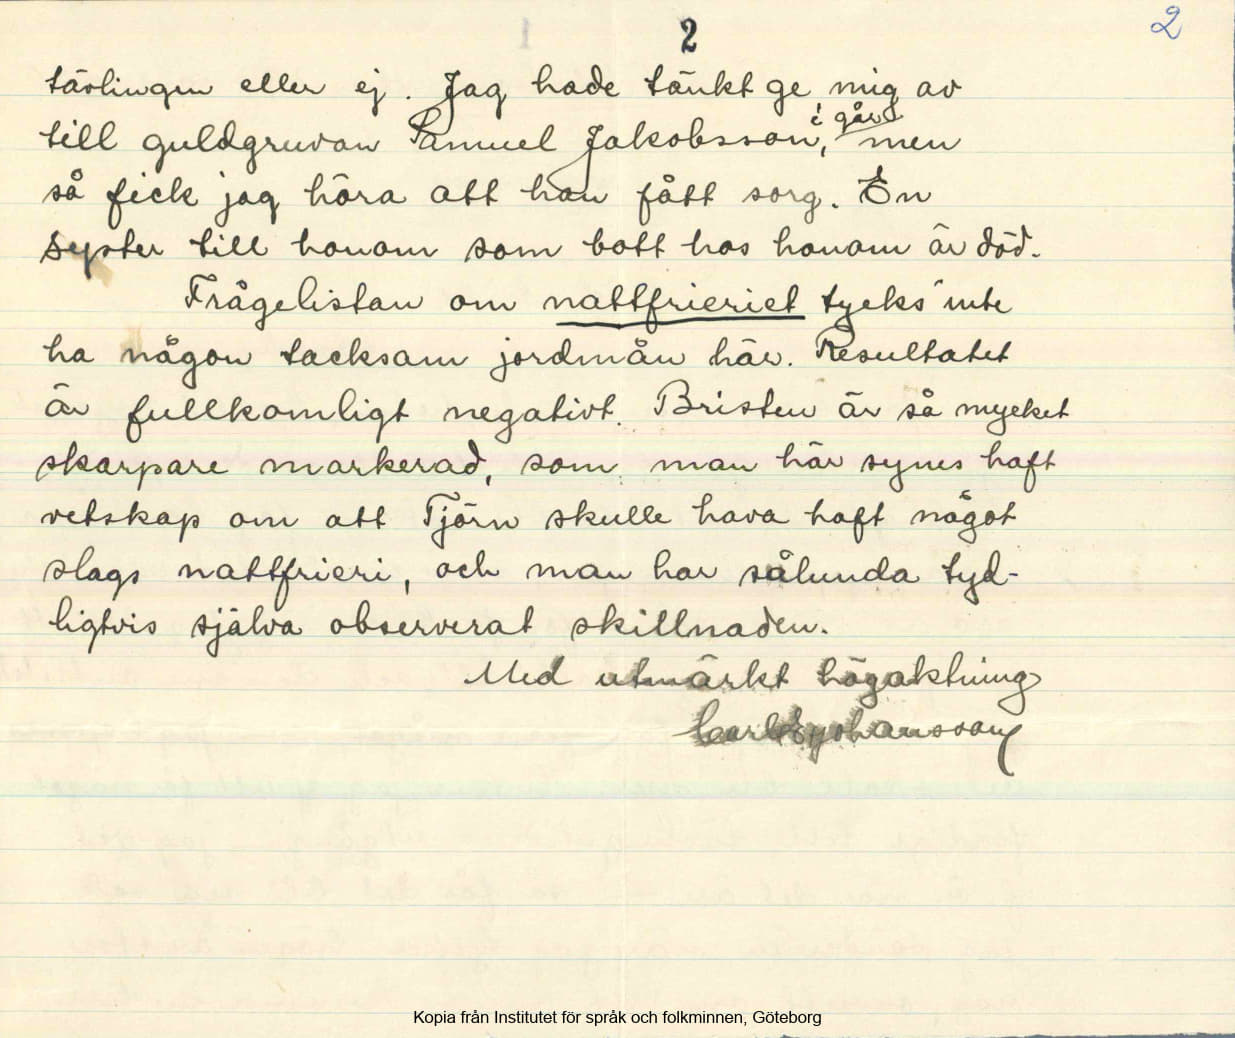 2
2
tävlingen eller ej. Jag hade tänkt ge mig av
till guldgruvan Samuel Jakobsson, i går men
så fick jag höra att han fått sorg. En
syster till honom som bott hos honom är död.
Frågelistan om nattfrieriet tycks inte
ha någon tacksam jordmån här. Resultatet
är fullkomligt negativt. Bristen är så mycket
skarpare markerad, som man här synes haft
vetskap om att Tjörn skulle hava haft något
slags nattfrieri, och man har sålunda tyd-
ligtvis själva observerat skillnaden.
Med utmärkt högaktning
Carl
Kopia från Institutet för språk och folkminnen, Göteborg